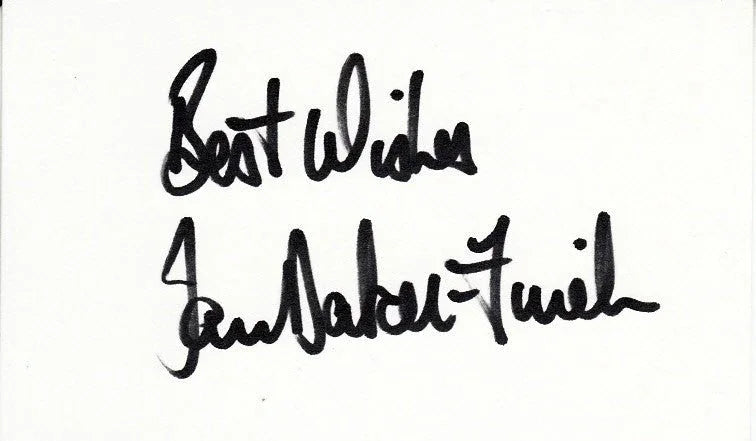 Best Wishes
Ian Baker-Finch